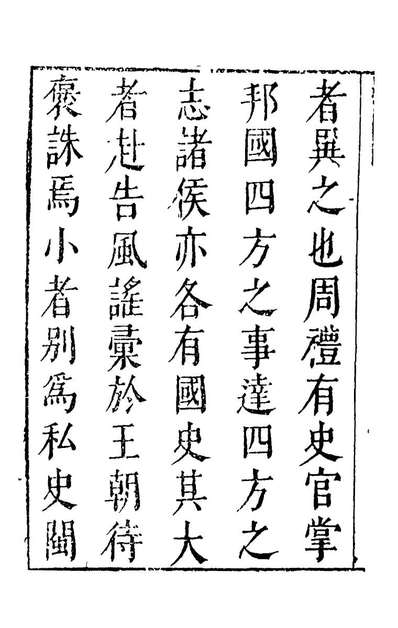 者異之也周禮有史官掌
邦國四方之事達四方之
志諸侯亦各有國史其大
者赴告風謠彙於王朝待
褒誅焉小者別爲私史閩